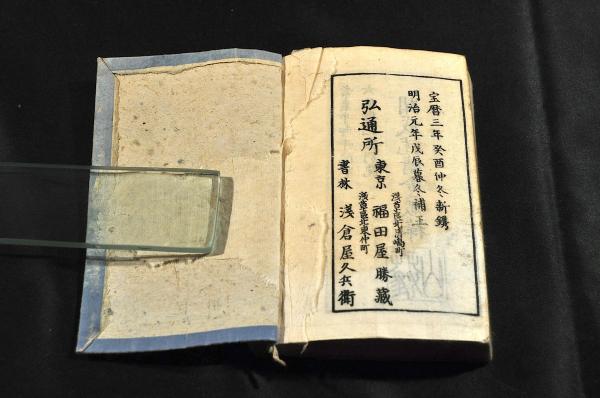 宝暦三年癸酉仲冬、新鐫
明治元年戊辰暮冬、補正
弘通所
東京
淺草區北
福田屋勝蔵
書林
淺草區北東仲町
淺倉屋久兵衛